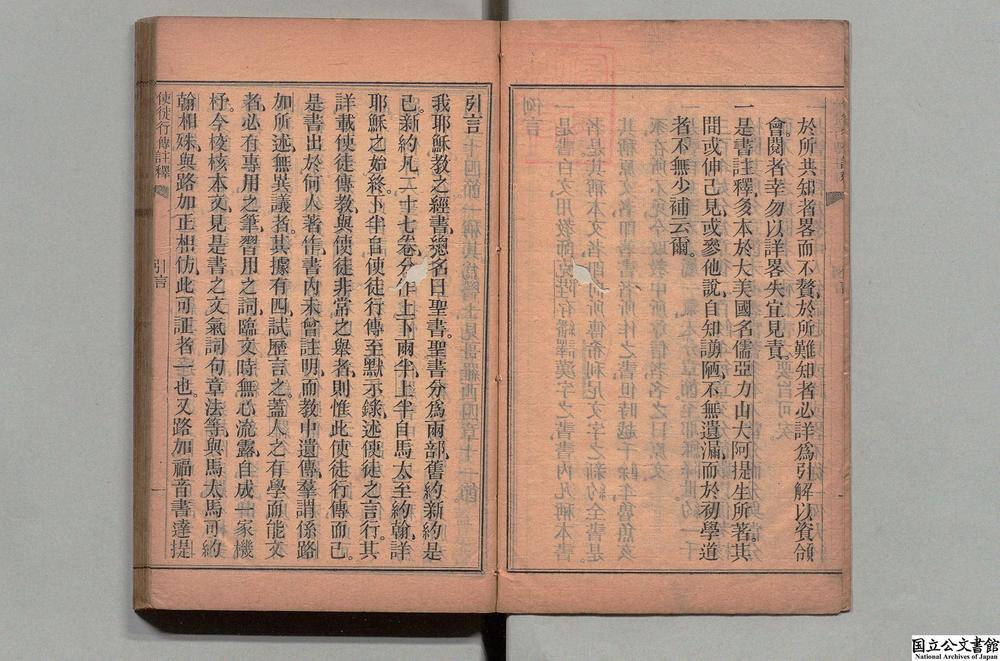 於所共知者畧而不贅於所難知者必詳爲引解以資領
會閱者幸勿以詳畧失宜見責。
一是書註釋多本於大美國名儒亞力山大阿提生所著。其
間或伸己見或參他說自知謭陋不無遺漏而於初學道
者不無少補云爾。
引言
我耶穌教之經書總名曰聖書。聖書分爲兩部舊約新約是
已。新約凡二十七卷分作上下兩半上半自馬太至約翰詳
耶穌之始終。下半自使徒行傳至默示錄述使徒之言行。其
詳載使徒傳教與使徒非常之舉者則惟此使徒行傳而已。
是書出於何人著作書內未曾註明而教中遺傳羣謂係路
加所述無異議者。其據有四試歷言之。蓋人之有學而能文
者必有專用之筆習用之詞臨文時無心流露自成一家機
杼。今校核本文見是書之文氣詞句章法等與馬太馬可約
翰相殊與路加正相仿此可証者一也。又路加福音書達提
使徒行傳註釋
引言
一
国立公文書館
National Archives of Japan